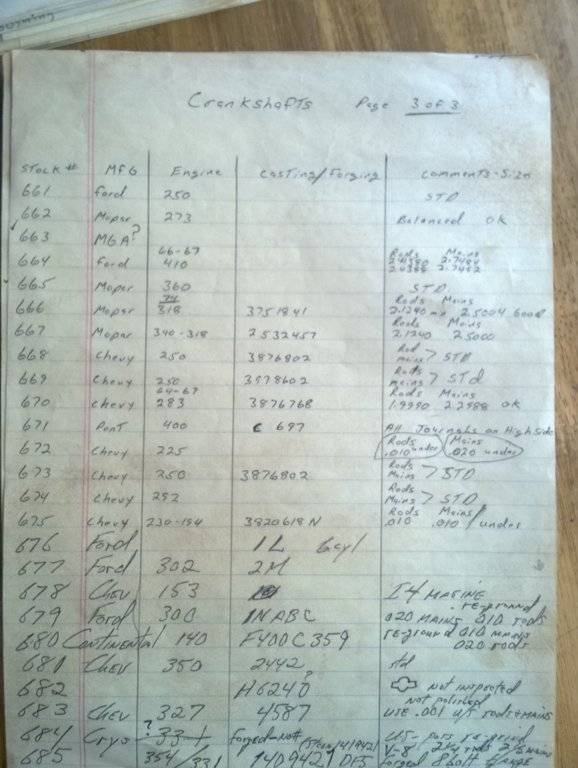 Crankshafts Page 3 of 3
STOCK # MFG Engine Casting/Forging Comments-Size
661 Ford 250 STD
662 Mopar 273 Balanced OK
663 MGA?
66-67 Rods Mains
664 Ford 410
665 Mopar 360 STD
74 Rods Mains
666 Mopar 318 3751841 2.1240 2.5004 Good
Rods Mains
667 Mopar 340-318 2532457 2.1240 2.5000
668 Chevy 250 3876802 Rod mains > STD
669 Chevy 250 3578602 Rods mains > STd
64-67 Rods Mains
670 Chevy 283 3876768 1.9990 2.2988 OK
671 Pont 400 C 697 All Journals on High Side
672 Chevy 225 Rods .010 under Mains .020 under
673 Chevy 250 3876802 Rods Mains > STD
674 Chevy 292 Rods Mains > STD
Rods Mains
675 Chevy 230-194 3820618 N .010 .010 / under
676 Ford 1L 6cyl
677 Ford 302 2M
678 Chev 153 I4 MARINE
re-ground
679 Ford 300 1NABC 020 MAINS 010 rods
680 Continental 140 F400C359 re-ground 010 mains
020 rods
681 Chev 350 2442 std
682 H6240 ? not inspected
not polished
683 Chev 327 4587 USE .001 U/S rods + MAINS
684 Crys ? 331 forged-not re-grind
685 354/331 forged 8 bolt FLANGE